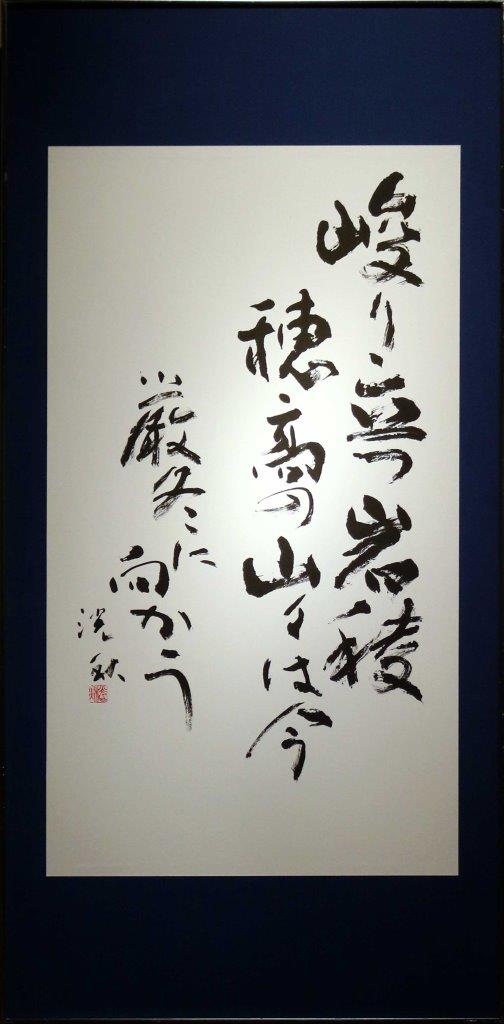 峻り立つ岩稜
穂高山々は今
厳冬に向かう